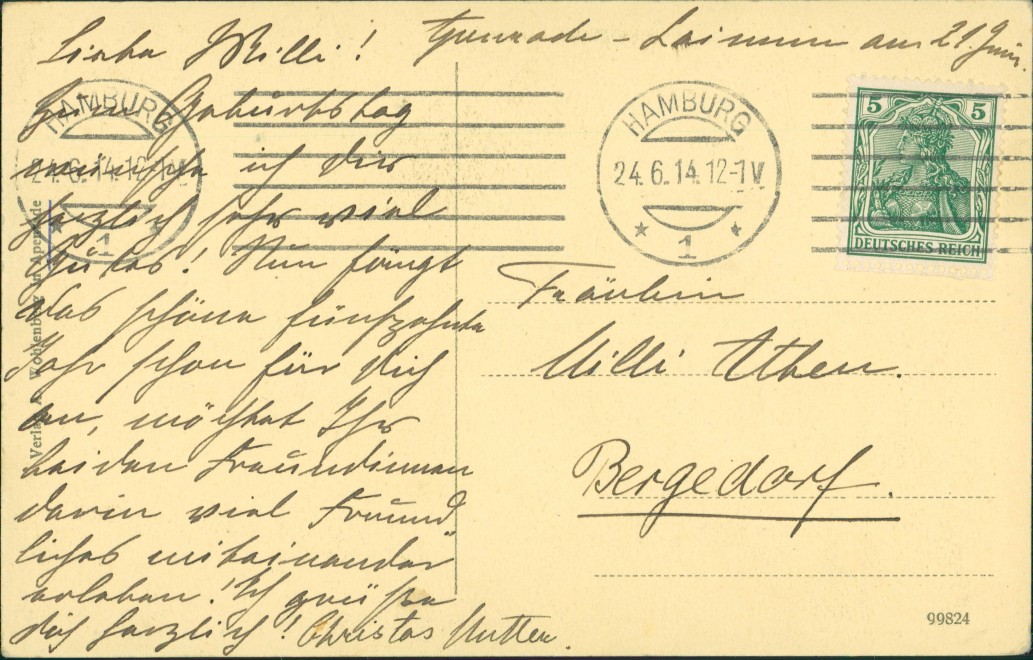 Liebe Milli!
am 21. Juni.
Zum Geburtstag
wünsche ich dir
herzlich sehr viel
Gutes! Nun fängt
das schöne fünfzehnte
Jahr schon für dich
an, möchtet Ihr
beiden Freundinnen
darin viel Freund
liches miteinander
erleben! Ich grüße
dich herzlich! Christas Mutter.
HAMBURG
24.6.14.12-1V
* 1 *
HAMBURG
24.6.14.12-1V
* 1 *
5 5
DEUTSCHES REICH
Fräulein
Milli Athen.
Bergedorf.
Wohlenberg in Apenrade
99824